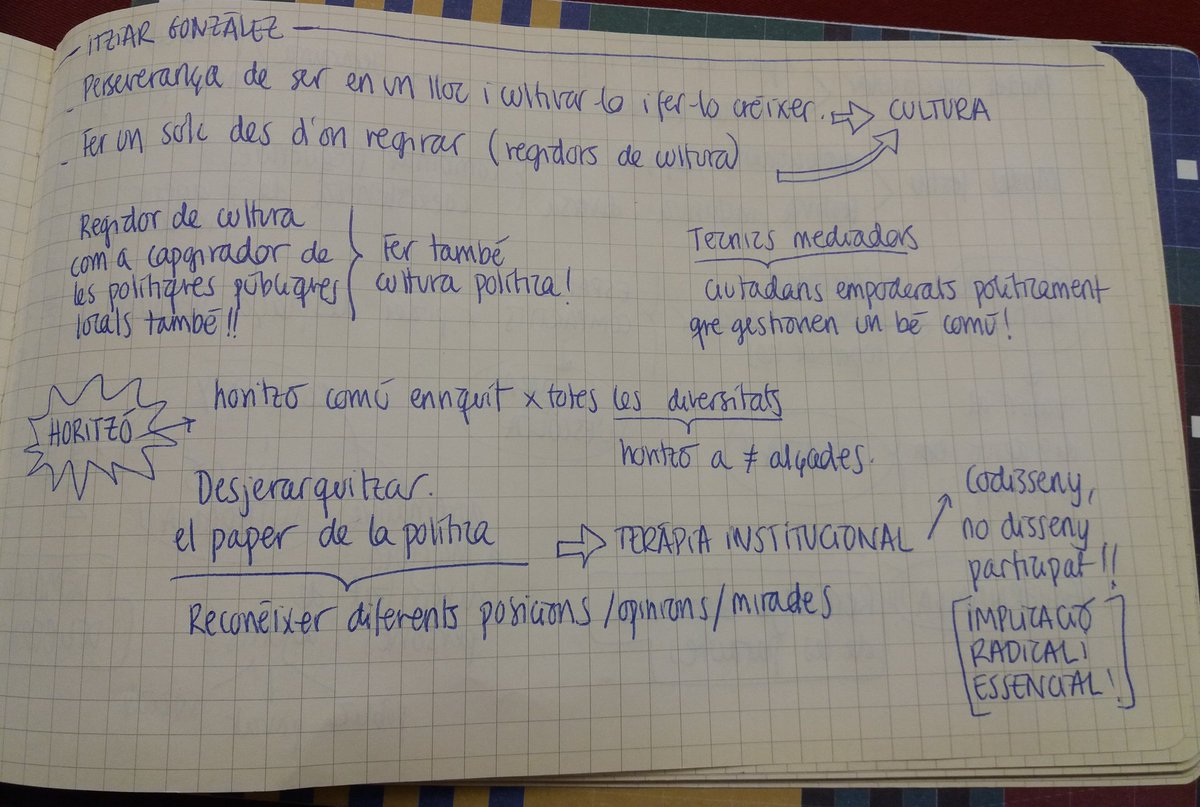 - ITZIAR GONZÁLEZ -
- Perseverança de ser en un lloc i cultivar-lo i fer-lo créixer. ⇨ CULTURA
- Fer un solc des d'on regirar (regidors de cultura)
Regidor de cultura
com a capgirador de
les polítiques públiques
locals també!!
Fer també
cultura política!
Tècnics mediadors
ciutadans empoderats políticament
que gestionen un bé comú!
HORITZÓ
horitzó comú enriquit x totes les diversitats
horitzó a ≠ alçades.
Desjerarquitzar.
el paper de la política
⇨ TERÀPIA INSTITUCIONAL
Reconèixer diferents posicions/opinions/mirades
Codisseny,
no disseny
participat!!
[IMPLICACIÓ
RADICAL I
ESSENCIAL!]